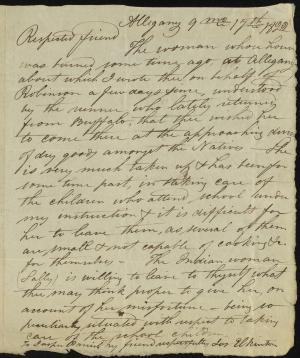 Allegany 9 mo 17th
Respected friend
The woman whose house
was burned some time ago, at Allegany
about which I wrote thee on behalf of
Robinson a few days since, understood
by the runner who lately returned
from Buffalo, that thee wished her
to come there at the approaching
of dry goods amongst the Natives - She
is very much taken up & has been for
some time past, in taking care of
the children who attend school under
my instruction & it is difficult for
her to leave them, as several of them
are small & not capable of cooking &c
for themselves - The Indian woman
Sally) is willing to leave to thyself what
thee may think proper to give her, on
account of her misfortune - being so
peculiarly situated with respect to taking
care of the school children
To Jasper Parrish my friend respectfully Jos Elkinton